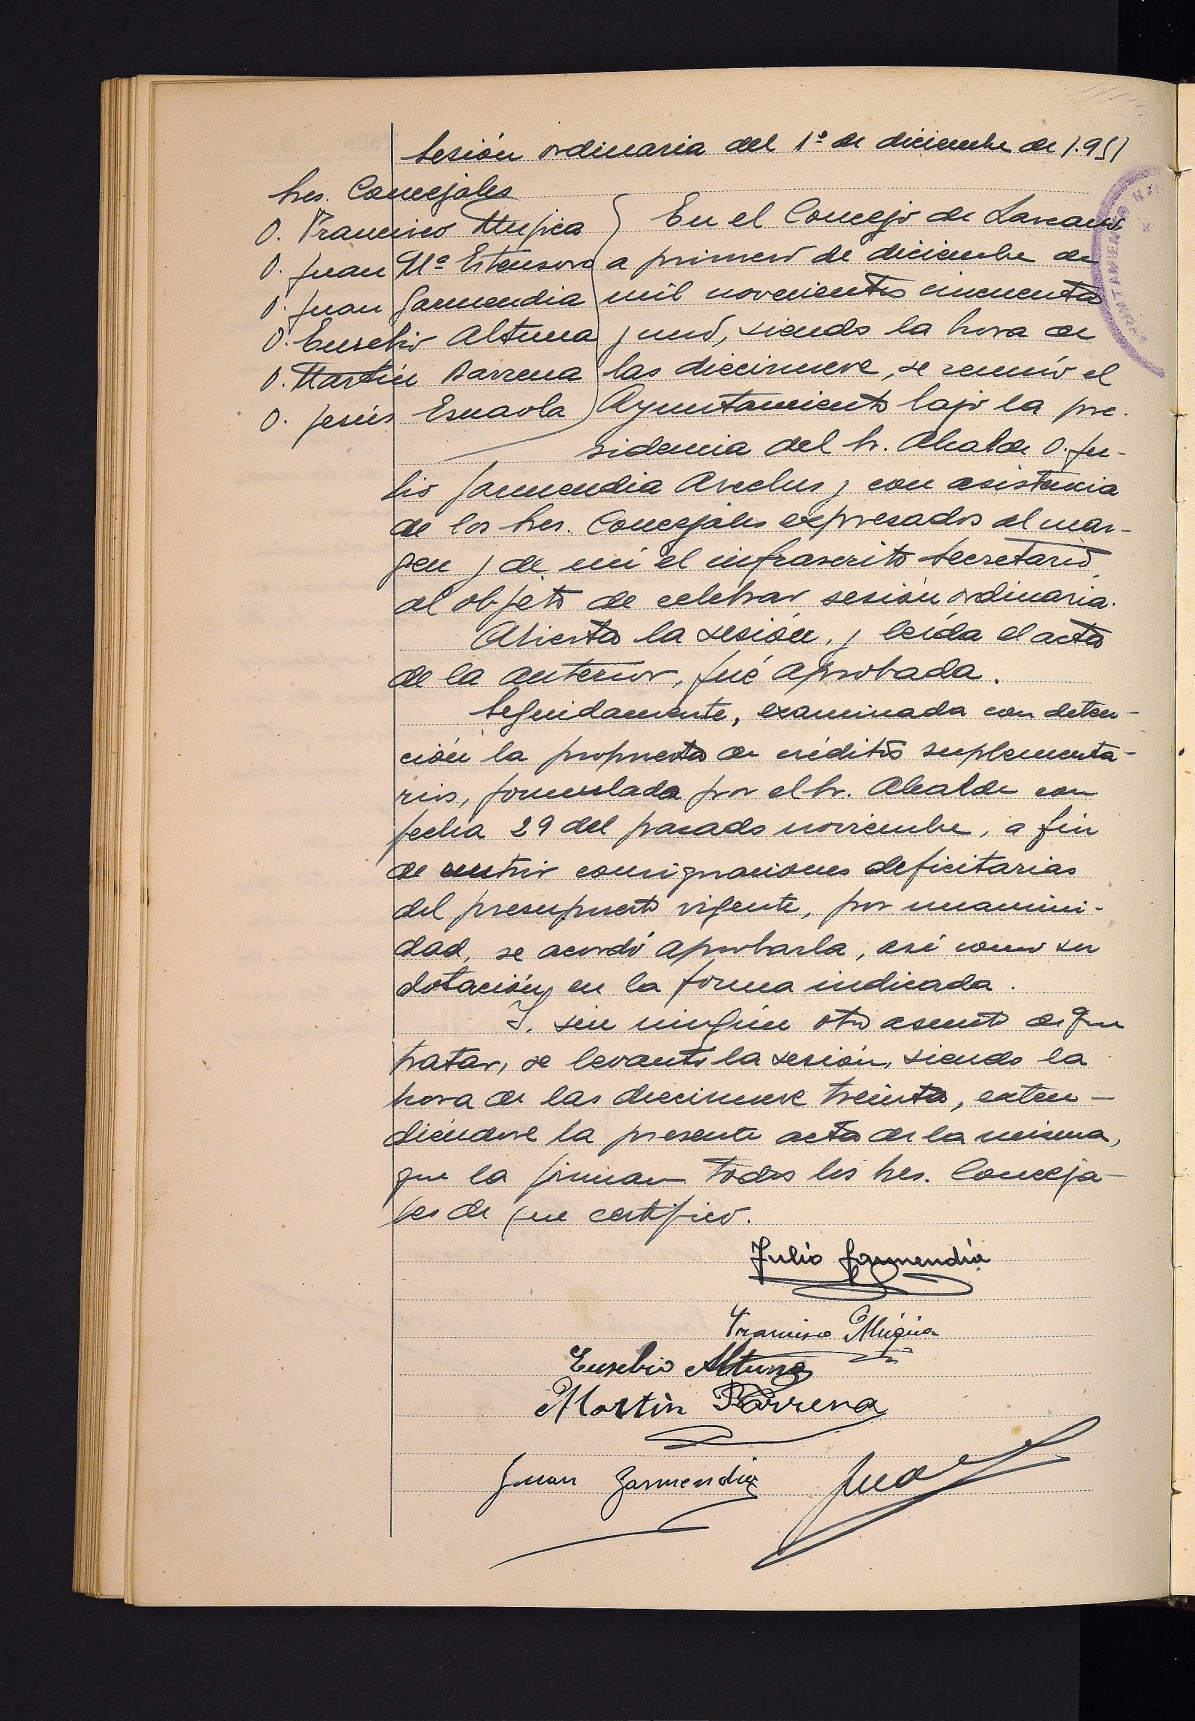 Sesión ordinaria del 1º de diciembre de 1.951
Sres. Concejales
D. Francisco Mujica
D. Juan Mª Estensoro
D. Juan Garmendia
D. Eusebio Altuna
D. Martín Barrena
D. Jesús Esnaola
En el Concejo de Lazcano,
a primero de diciembre de
mil novecientos cincuenta
y uno, siendo la hora de
las diecinueve, se reunió el
Ayuntamiento bajo la pre-
sidencia del Sr. Alcalde D. Ju-
lio Garmendia Areclus y con asistencia
de los Sres. Concejales expresados al mar-
gen y de mi el infrascrito Secretario
al objeto de celebrar sesión ordinaria.
Abierta la sesión, y leída el acta
de la anterior, fué aprobada.
Seguidamente, examinada con deten-
ción la propuesta de créditos suplementa-
rios, formulada por el Sr. Alcalde con
fecha 29 del pasado noviembre, a fin
de cubrir consignaciones deficitarias
del presupuesto vigente, por unanimi-
dad, se acordó aprobarla, así como su
dotación en la forma indicada.
Y, sin ningún otro asunto de que
tratar, se levantó la sesión, siendo la
hora de las diecinueve treinta, exten-
diéndose la presente acta de la misma,
que la firman todos los Sres. Conceja-
les de que certifico.
Julio Garmendia
Francisco Mujica
Eusebio Altuna
Martín Barrena
Juan Garmendia